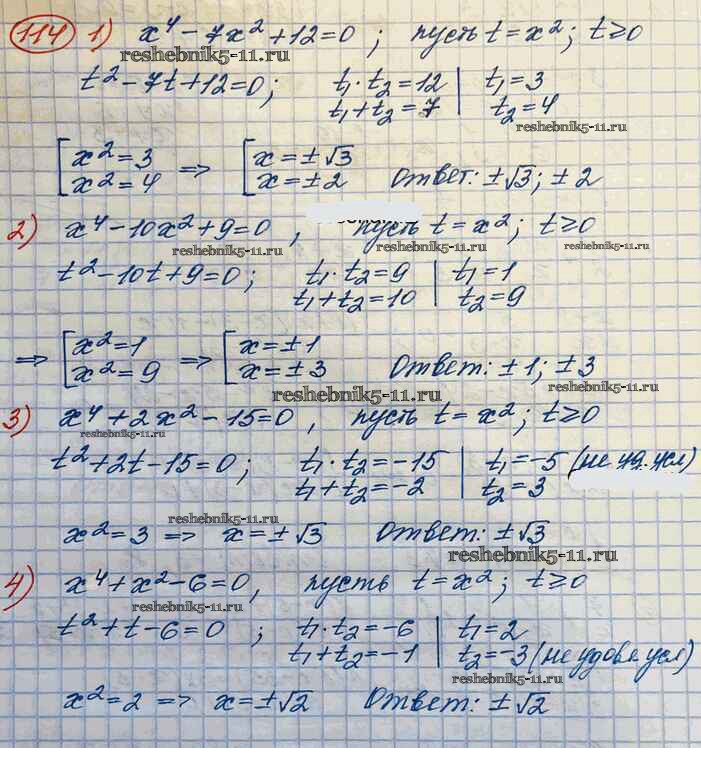 114 1) x⁴ - 7x² + 12 = 0 ; пусть t = x² ; t ≥ 0
reshebnik5-11.ru
t² - 7t + 12 = 0 ; t₁ · t₂ = 12 | t₁ = 3
t₁ + t₂ = 7 | t₂ = 4
reshebnik5-11.ru
[ x² = 3 => [ x = ± √3
x² = 4 x = ± 2 ответ: ± √3 ; ± 2
2) x⁴ - 10x² + 9 = 0 , пусть t = x² ; t ≥ 0
reshebnik5-11.ru reshebnik5-11.ru reshebnik5-11.ru
t² - 10t + 9 = 0 ; t₁ · t₂ = 9 | t₁ = 1
t₁ + t₂ = 10 | t₂ = 9
=> [ x² = 1 => [ x = ± 1
x² = 9 x = ± 3 Ответ: ± 1 ; ± 3
reshebnik5-11.ru reshebnik5-11.ru
3) x⁴ + 2x² - 15 = 0 , пусть t = x² ; t ≥ 0
reshebnik5-11.ru
t² + 2t - 15 = 0 ; t₁ · t₂ = -15 | t₁ = -5 (не уд. усл)
t₁ + t₂ = -2 | t₂ = 3
reshebnik5-11.ru
x² = 3 => x = ± √3 Ответ: ± √3
reshebnik5-11.ru
4) x⁴ + x² - 6 = 0 , пусть t = x² ; t ≥ 0
reshebnik5-11.ru
t² + t - 6 = 0 ; t₁ · t₂ = -6 | t₁ = 2
t₁ + t₂ = -1 | t₂ = -3 (не удовл усл)
reshebnik5-11.ru
x² = 2 => x = ± √2 Ответ: ± √2